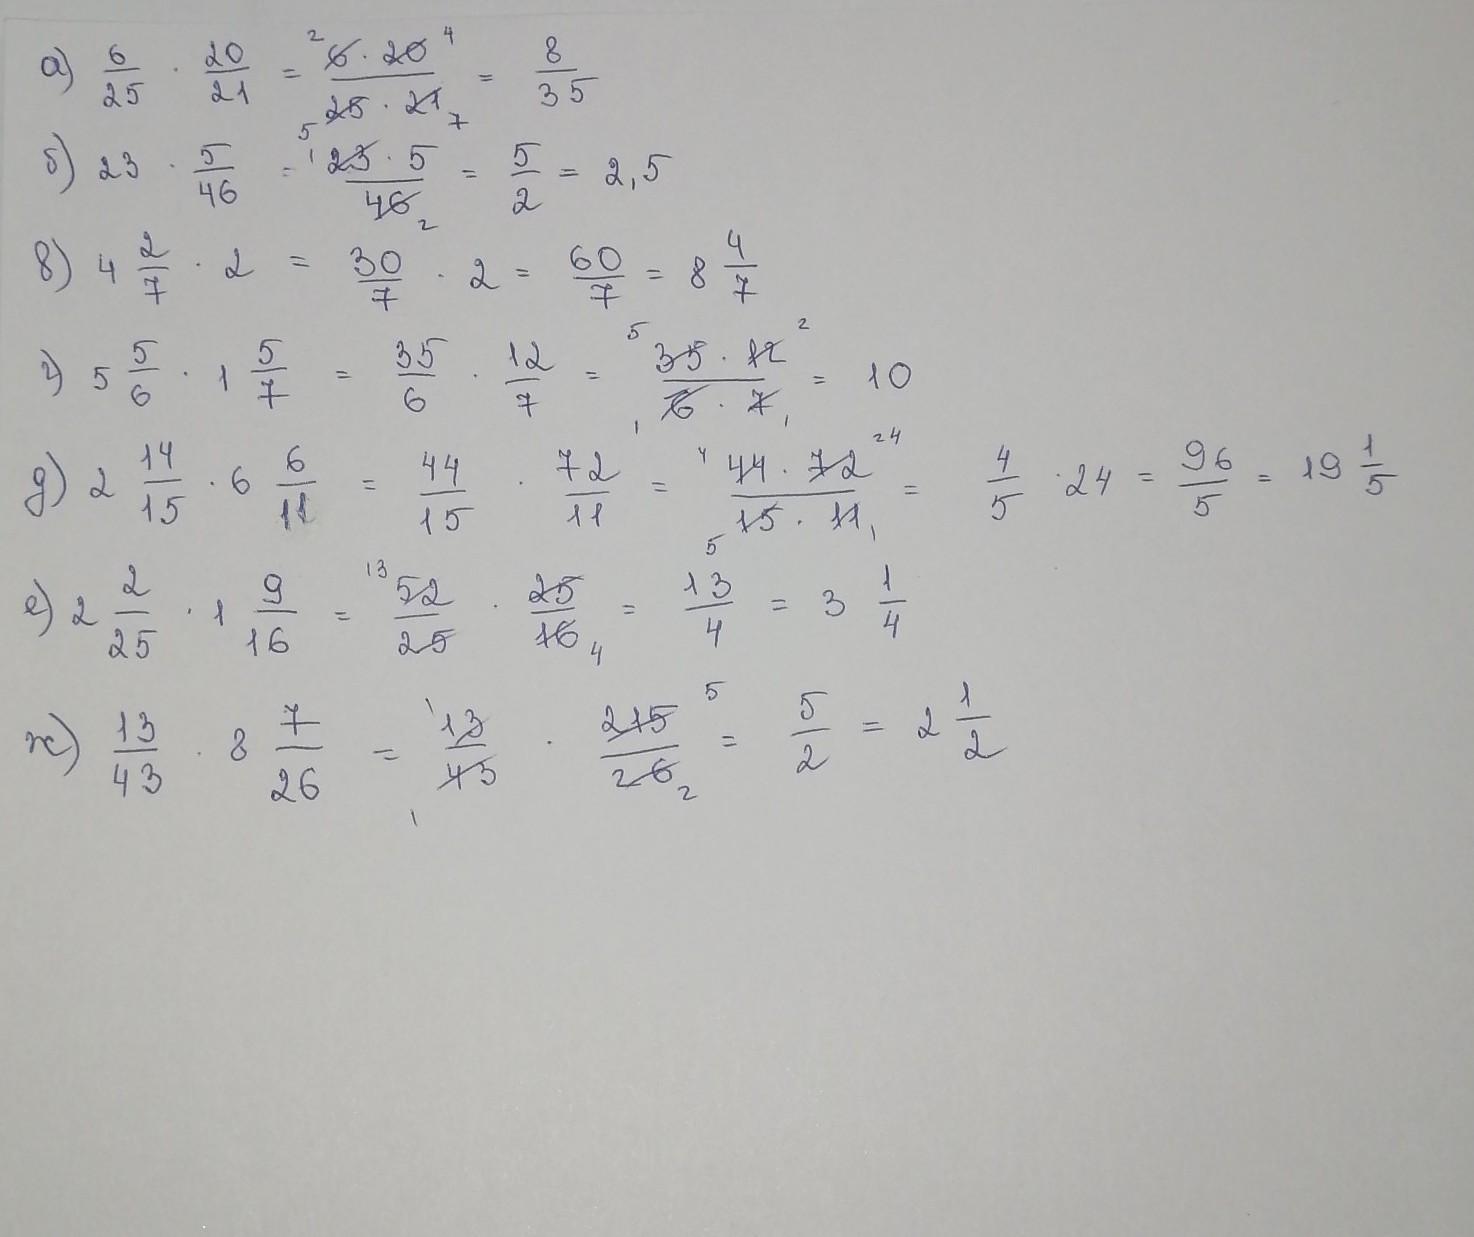 а) 6/25 · 20/21 = 2 6 · 20 4 / 5 25 · 21 7 = 8/35
б) 23 · 5/46 = 1 23 · 5 / 46 2 = 5/2 = 2,5
в) 4 2/7 · 2 = 30/7 · 2 = 60/7 = 8 4/7
г) 5 5/6 · 1 5/7 = 35/6 · 12/7 = 5 35 · 12 2 / 1 6 · 7 1 = 10
д) 2 14/15 · 6 6/11 = 44/15 · 72/11 = 4 44 · 72 24 / 5 15 · 11 1 = 4/5 · 24 = 96/5 = 19 1/5
е) 2 2/25 · 1 9/16 = 13 52/25 · 25/16 4 = 13/4 = 3 1/4
ж) 13/43 · 8 7/26 = 1 13/43 1 · 215 5 / 26 2 = 5/2 = 2 1/2